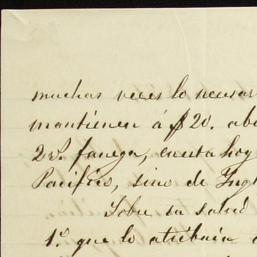 muchas veces lo necesar
mantienen á $20. abo
2ª. fanega, cuesta hoy
Pacifico, sino de Ingl
Sobre su salud
1º. que lo atribuia